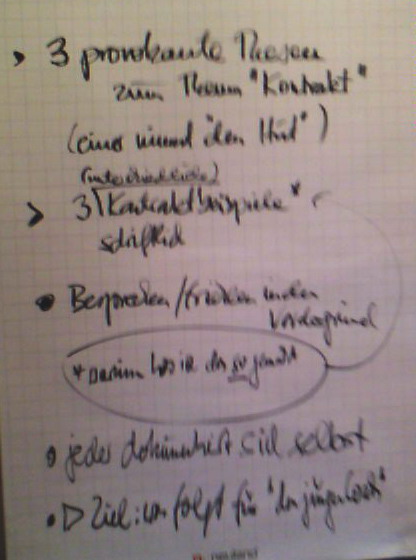 > 3 provokante Thesen
zum Thema "Kontakt"
(einer nimmt "den Hut")
(unterschiedliche)
> 3 "Kontaktbeispiele" *
schriftlich
• Besprechen / in den
Vordergrund
* warum habe ich das so gemacht
• jeder dokumentiert sich selbst
• Ziel: was folgt für "den jungen
neuland